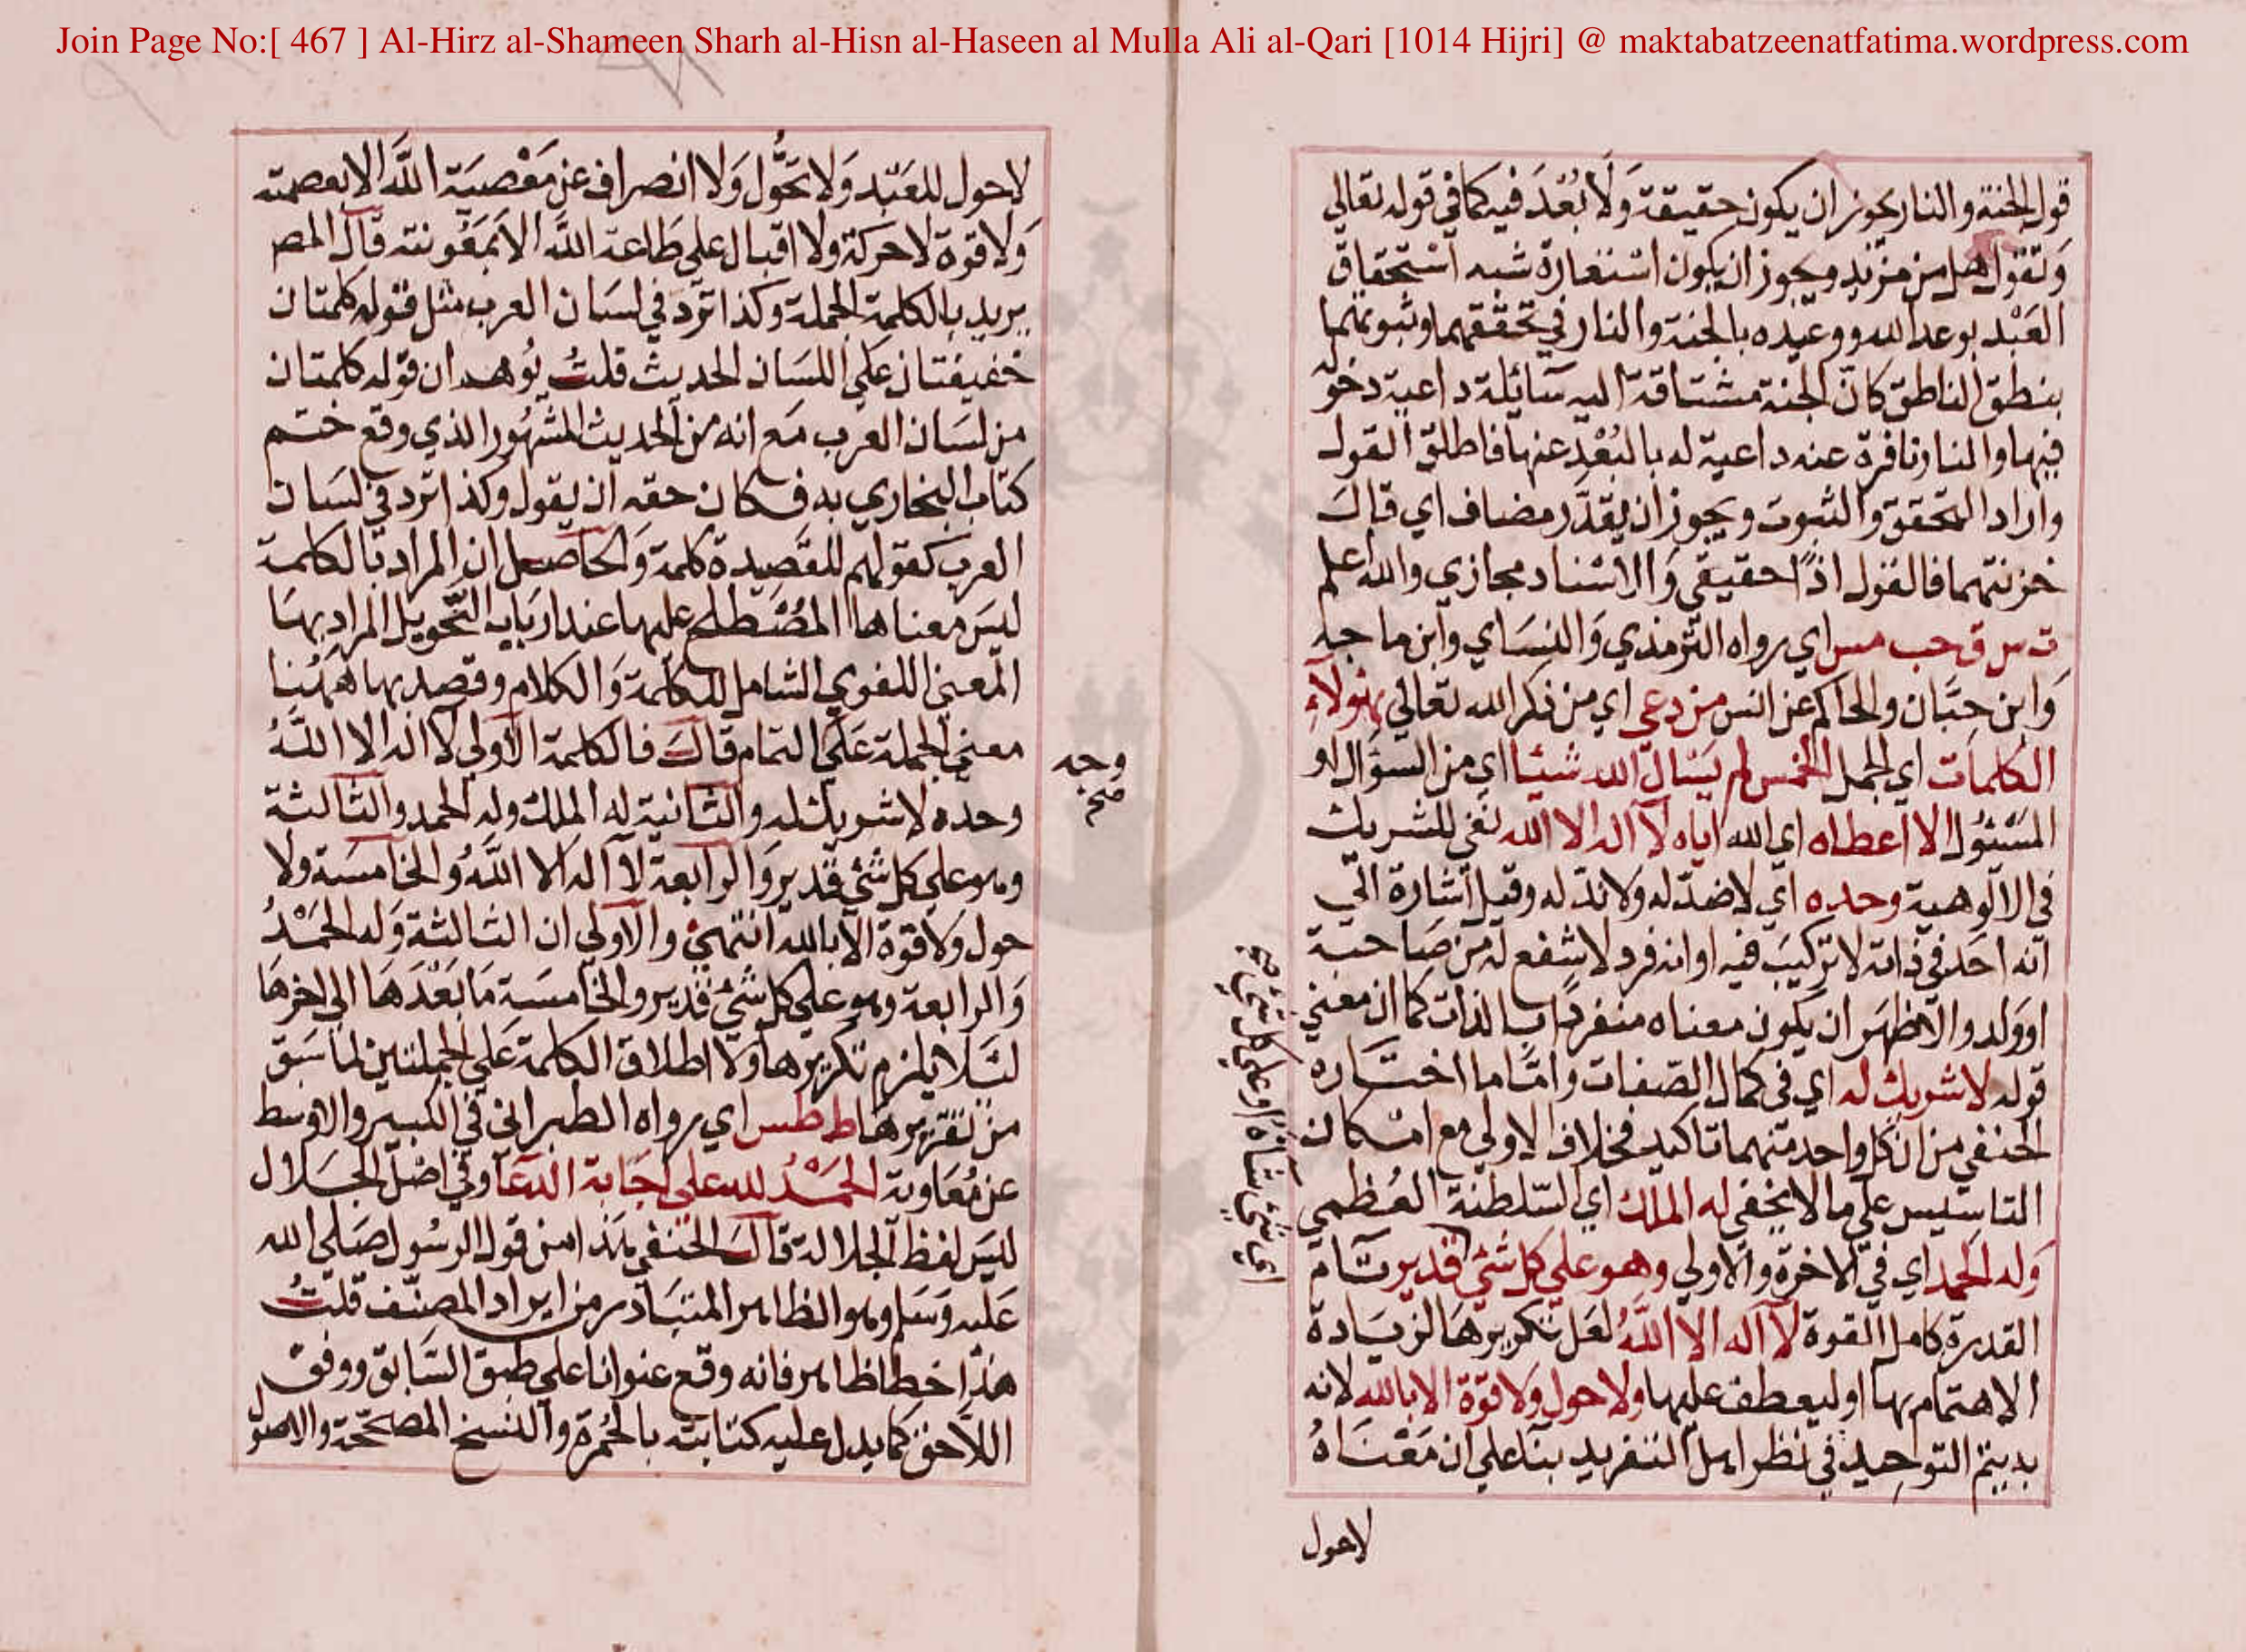 Join Page No:[ 467 ] Al-Hirz al-Shameen Sharh al-Hisn al-Haseen al Mulla Ali al-Qari [1014 Hijri] @ maktabatzeenatfatima.wordpress.com
قول الجنة والنار يجوز ان يكون حقيقة وَلَا بُعْدَ فيه كما في قوله تعالي
وَتقول هل من مزيد ويجوز ان يكون استعارة شبه استحقاق
العَبْد بوعد الله ووعيده بالجنة والنار في تحققهما وثبوتهما
بنطق الناطق كانّ الجنة مشتاقة اليه سَائلة داعية دخوله
فيها والنار نافرة عنه داعية له بالبُعْدِ عنها فاطلق القول
واراد التحقق والثبوت ويجوز ان يقدَّر مضاف اي قالَ
خزنتهما فالقول اذًا حقيقي وَالاسْناد مجازي والله اعلم
ت س ق حب مس اي رواه الترمذي وَالنسَاي وابن ماجه
وَابن حِبَّان والحاكم عن انس من دعي اي من ذكر الله تعالي بهَولآءِ
الكلمات اي الجمل الخمس لم يَسْال الله شيئا اي من السؤال او
المَسْئول الا اعطاه اي الله اياه لا اله الا الله نفي للشريك
في الالوهية وحده اي لا ضدّ له ولا ندّ له وقيل اشارة الي
انه احَد في ذاته لا تركيبَ فيه او انه فرد لا شفع له من صَاحبة
او ولد والاظهَر ان يكون معناه منفردًا بالذات كما ان معني
قوله لا شريك له اي في كمال الصّفات وامّا ما اختَاره
الحنفي من ان كل واحد منهما تاكيد فخلاف الاولي مع امْكان
التاسيس علي ما لا يخفي له الملك اي السّلطنة العُظمي
وَله الحمد اي في الاخرة والاولي وهو علي كل شيْ قدير تَام
القدرة كامل القوة لا اله الا اللَّهُ لعَل تكريرهَا لزيَادة
الاهتمام بها او ليعطف عليها ولا حول وَلا قوّة الا بالله لانه
التوحيد في نظر اهل التفريد بنَا علي ان مَعْنَاهُ
لاحول
اي شيْ شاءَه او علي كل شيْ
لا حول للعَبْد وَلا تحَوُّل وَلا انصراف عن مَعْصيَة اللَّه الا بعصمته
وَلا قوة لا حركة ولا اقبال علي طَاعة اللَّه الا بمَعُونته قال المص
يريد بالكلمة الجملة وكذا ترد في لسَان العرب مثل قوله كلمتان
خفيفتان عَلي اللسَان الحديث قلتُ يُوهم ان قوله كلمتان
من لسَان العرب مَع انه من الحديث المشهُور الذي وقع ختم
كتاب البخاري به فكان حقه ان يقول وكذا ترد في لسَان
العرب كقولهم للقَصِيدة كلمة وَالحاصل ان المراد بالكلمة
ليسَ معناها المُصْطلح عليها عند اربَاب النّحو بل المراد بهَا
المعني اللغوي الشامل للكلمة وَالكلام وقصد بها ههُنا
معني الجملة عَلي التمام قالَ فالكلمة الاولي لا اله الا اللَّهُ
وحده لا شريك له والثانية له الملك وله الحمد والثالثة
وهو علي كل شيْ قدير وَالرابعة لا اله الا اللَّهُ والخامسَة ولا
حول وَلا قوة الا بالله انتهيْ والاولي ان الثالثة وَله الحَمْدُ
وَالرابعة وهو علي كل شيْ قدير والخامسَة مَا بَعْدَهَا الي اخرهَا
لئَلا يلزم تكريرها وَلا اطلاق الكلمة عَلي الجملتين لما سَبق
من تقريرهَا ط طس اي رواه الطبراني في الكبير والاوسط
عن مُعَاوية الحَمْدُ لله علي اجَابة الدعَا وفي اصْل الجَلال
ليسَ لفظ الجلالة قالَ الحنفي هَذا من قول الرسُول صَلي الله
عَليه وَسَلم وهو الظاهر المتبَادر من ايراد المصنّف قلتُ
هَذا خطا ظاهر فانه وقع عنوانا علي طبق السَّابق ووفق
اللَّاحق كما يدل عليه كتابته بالحُمرة والنسخ المصحّحة والاصول
وجه
صح